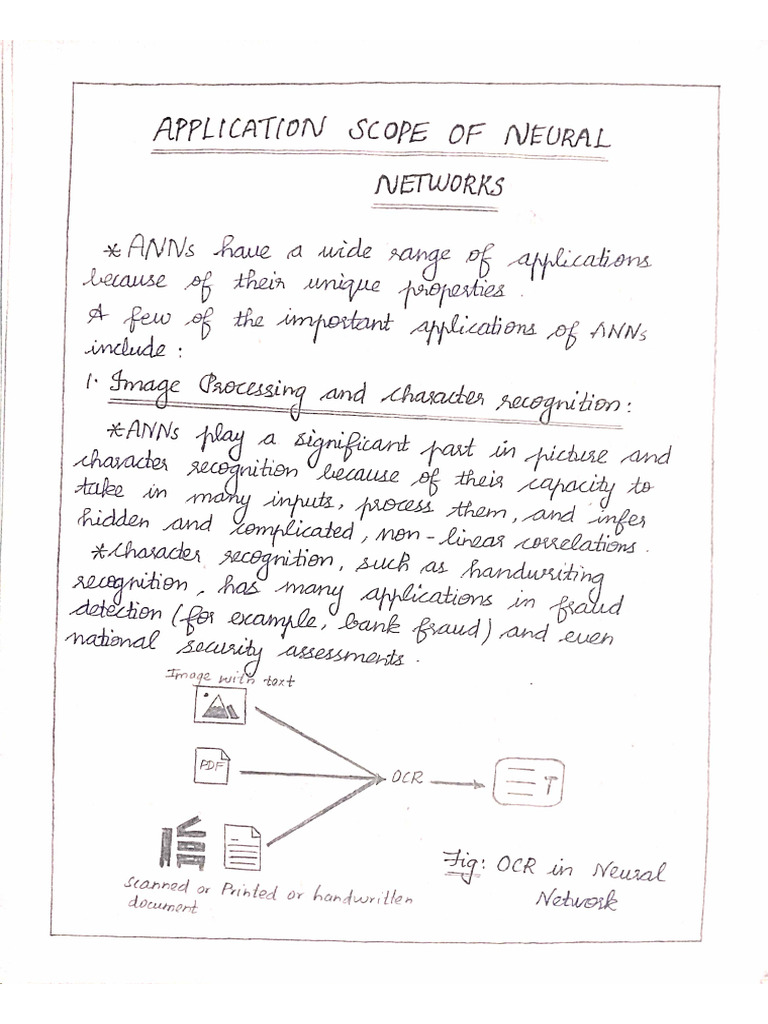 APPLICATION SCOPE OF NEURAL
NETWORKS
* ANNs have a wide range of applications
because of their unique properties.
A few of the important applications of ANNs
include :
1. Image Processing and character recognition :
* ANNs play a significant part in picture and
character recognition because of their capacity to
take in many inputs, process them, and infer
hidden and complicated, non-linear correlations.
* Character recognition, such as handwriting
recognition, has many applications in fraud
detection (for example, bank fraud) and even
national security assessments.
Image with text
PDF
OCR
T
Scanned or Printed or handwritten
document
Fig: OCR in Neural
Network